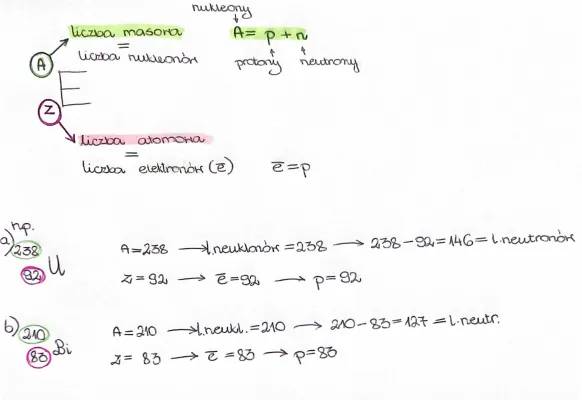 nukleony
liczba masowa A = p + n
=
liczba nukleonów protony neutrony
A
E
Z
liczba atomowa
=
liczba elektronów (e̅) e̅ = p
np.
a) 238 A = 238 → l. neuklonów = 238 → 238 - 92 = 146 = l. neutronów
92 U Z = 92 → e̅ = 92 → p = 92
b) 210 A = 210 → l. neukl. = 210 → 210 - 83 = 127 = l. neutr.
83 Bi Z = 83 → e̅ = 83 → p = 83